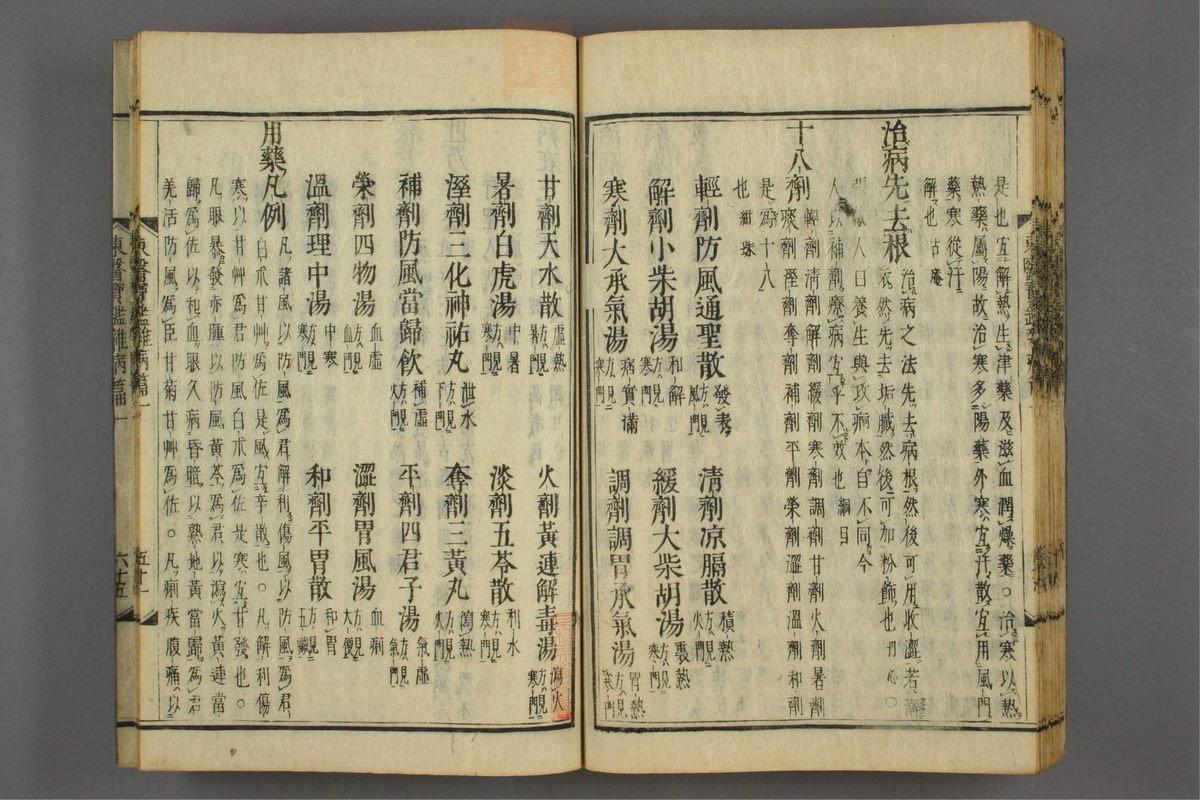 是也宜解熱生津藥及滋血潤燥藥○治寒以熱
熱藥屬陽故治寒多陽藥外寒宜汗散宜用風門
藥寒從汗
解也 古庵
治病先去根 治病之法先去病根然後可用收澁若澣
衣然先去垢膩然後可加粉飾也 丹心○
人曰養生與攻病本自不同今
人以補劑療病宜乎不效也 綱目
十八劑 輕劑清劑解劑緩劑寒劑調劑甘劑火劑暑劑
淡劑溼劑奪劑補劑平劑榮劑澀劑溫劑和劑
是爲十八
也 紺珠
輕劑防風通聖散 發表方見風門 清劑凉膈散 積熱方見火門
解劑小柴胡湯 和解方見寒門 緩劑大柴胡湯 裏熱方見寒門
寒劑大承氣湯 痞實滿方見寒門 調劑調胃承氣湯 胃熱方見寒門
甘劑天水散 虛熱方見暑門 火劑黃連解毒湯 瀉火方見寒門
暑劑白虎湯 中暑方見寒門 淡劑五苓散 利水方見寒門
溼劑三化神祐丸 泄水方見下門 奪劑三黃丸 瀉熱方見火門
補劑防風當歸飮 補虛方見火門 平劑四君子湯 氣虛方見氣門
榮劑四物湯 血虛方見血門 澀劑胃風湯 血痢方見大便
溫劑理中湯 中寒方見寒門 和劑平胃散 和胃方見五臟
用藥凡例 凡諸風以防風爲君解利傷風以防風爲君
白朮甘艸爲佐是風宜辛散也○凡解利傷
寒以甘艸爲君防風白朮爲佐是寒宜甘發也○
凡眼暴發赤腫以防風黃芩爲君以瀉火黃連當
歸爲佐以和血眼久病昏暗以熟地黃當歸爲君
羌活防風爲臣甘菊甘艸爲佐○凡痢疾腹痛以
東醫寶鑑雜病篇一
六十五